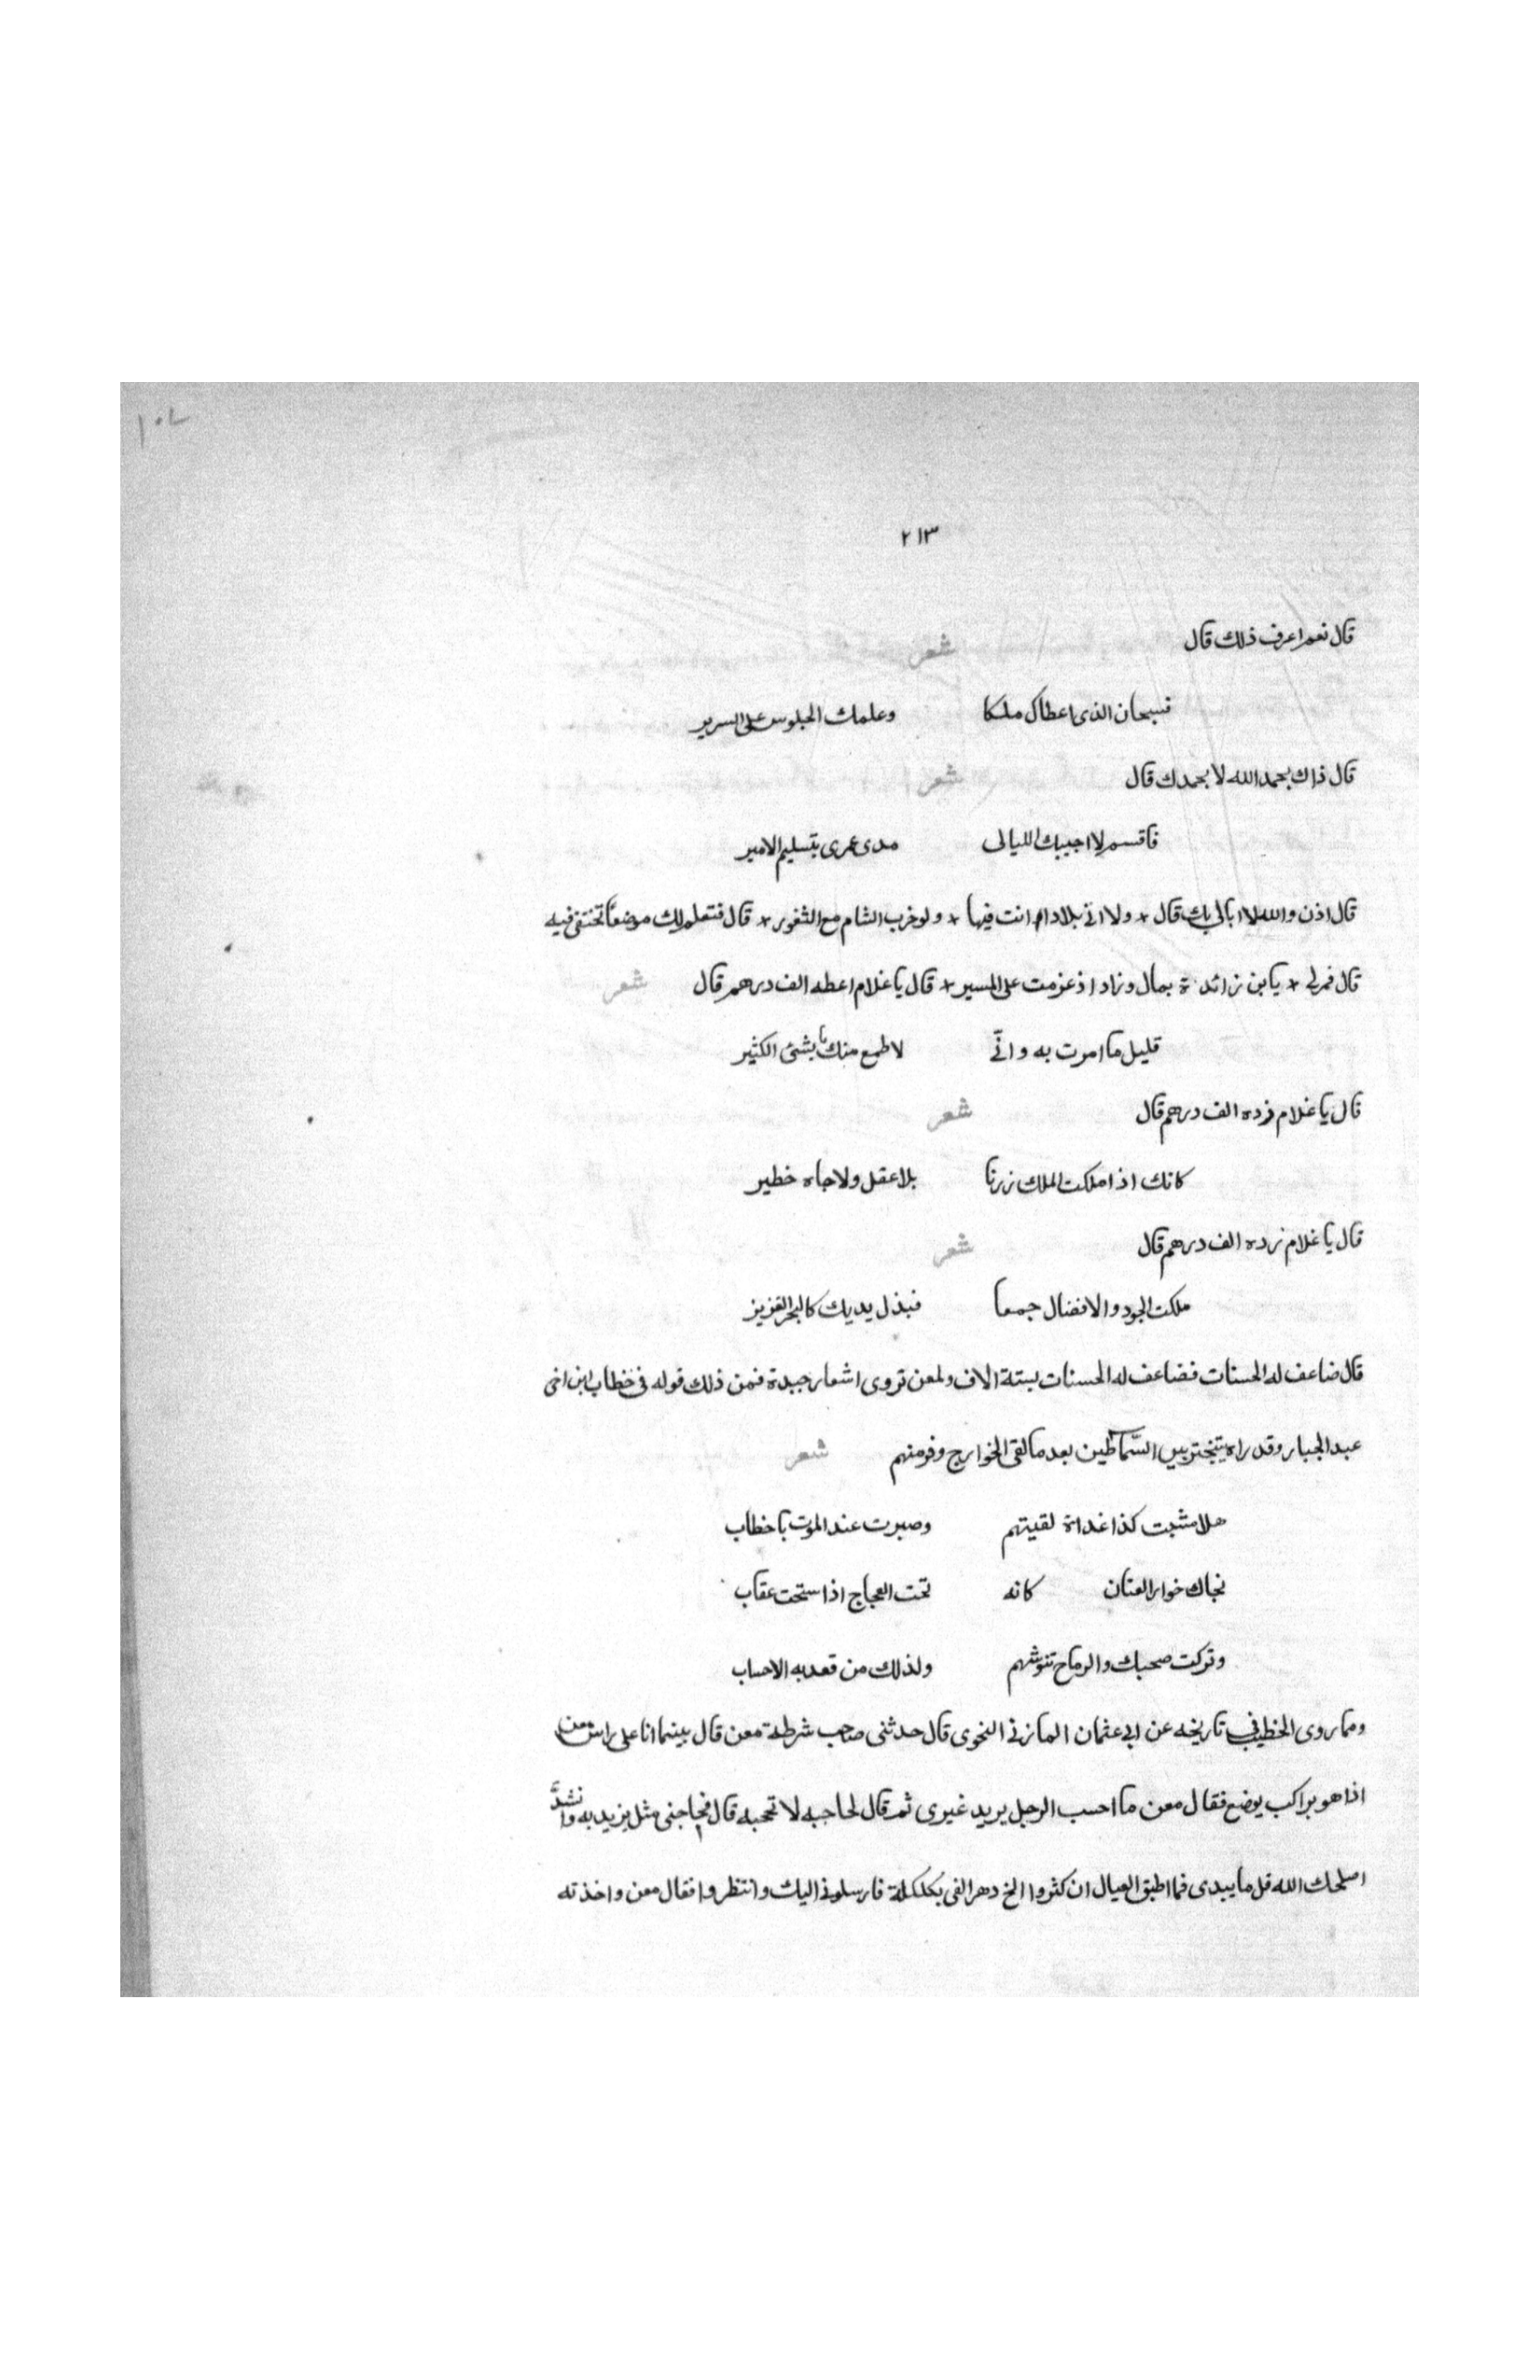 ١٠٧
٢١٣
قال نعم اعرف ذلك قال شعر
فسبحان الذى اعطاك ملكا وعلمك الجلوس على السرير
قال ذاك بحمد الله لا بحمدك قال شعر
فاقسم لا اجيبك الليالى مدى عمرى بتسليم الامير
قال اذن والله لا ابالى بك قال + ولا اتى بلادا انت فيها + ولو خرب الشام مع الثغور + قال فتعلم لك موضعا تختفى فيه
قال فمر لى + يا بن زائدة بمال وزاد اذ عزمت على المسير + قال يا غلام اعطه الف درهم قال شعر
قليل ما امرت به وانّى لا طمع منك بشئ الكثير
قال يا غلام زده الف درهم قال شعر
كانك اذا ملكت الملك زرنا بلا عقل ولا جاه خطير
قال يا غلام زده الف درهم قال شعر
ملكت الجود والافضال جمعا فبذل يديك كالبحر الغزيز
قال ضاعف له الحسنات فضاعف له الحسنات بستة الاف ولمعن تروى اشعار جيدة فمن ذلك قوله فى خطاب ابن اخى
عبد الجبار وقد راه يتبختر بين السّماطين بعد ما لقى الخوارج وفر منهم شعر
هلا مشيت كذا غداة لقيتهم وصبرت عند الموت يا خطاب
نجاك خوار العنان كانه تحت العجاج اذا ستحت عقاب
وتركت صحبك والرماح تنوشهم ولذلك من قعد به الاحساب
ومما روى الخطيب فى تاريخه عن ابى عثمان المازنى النحوى قال حدثنى صاحب شرطة معن قال بينما انا على راس معن
اذا هو براكب يوضع فقال معن ما احسب الرجل يريد غيرى ثم قال لحاجبه لا تحجبه قال فجا حتى مثل بين يديه وانشد
اصلحك الله قل ما بيدى فما اطيق العيال ان كثروا الخ دهر القى بكلكلة فارسلونى اليك وانتظروا فقال معن واخذته